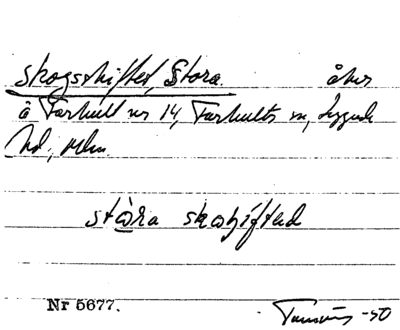 Skogsskiftet, Stora. åker
å Farhult nr 14, Farhults sn, Luggude
hd, Mlm.
stòra skoʒiftəd
Nr 5677.
-50